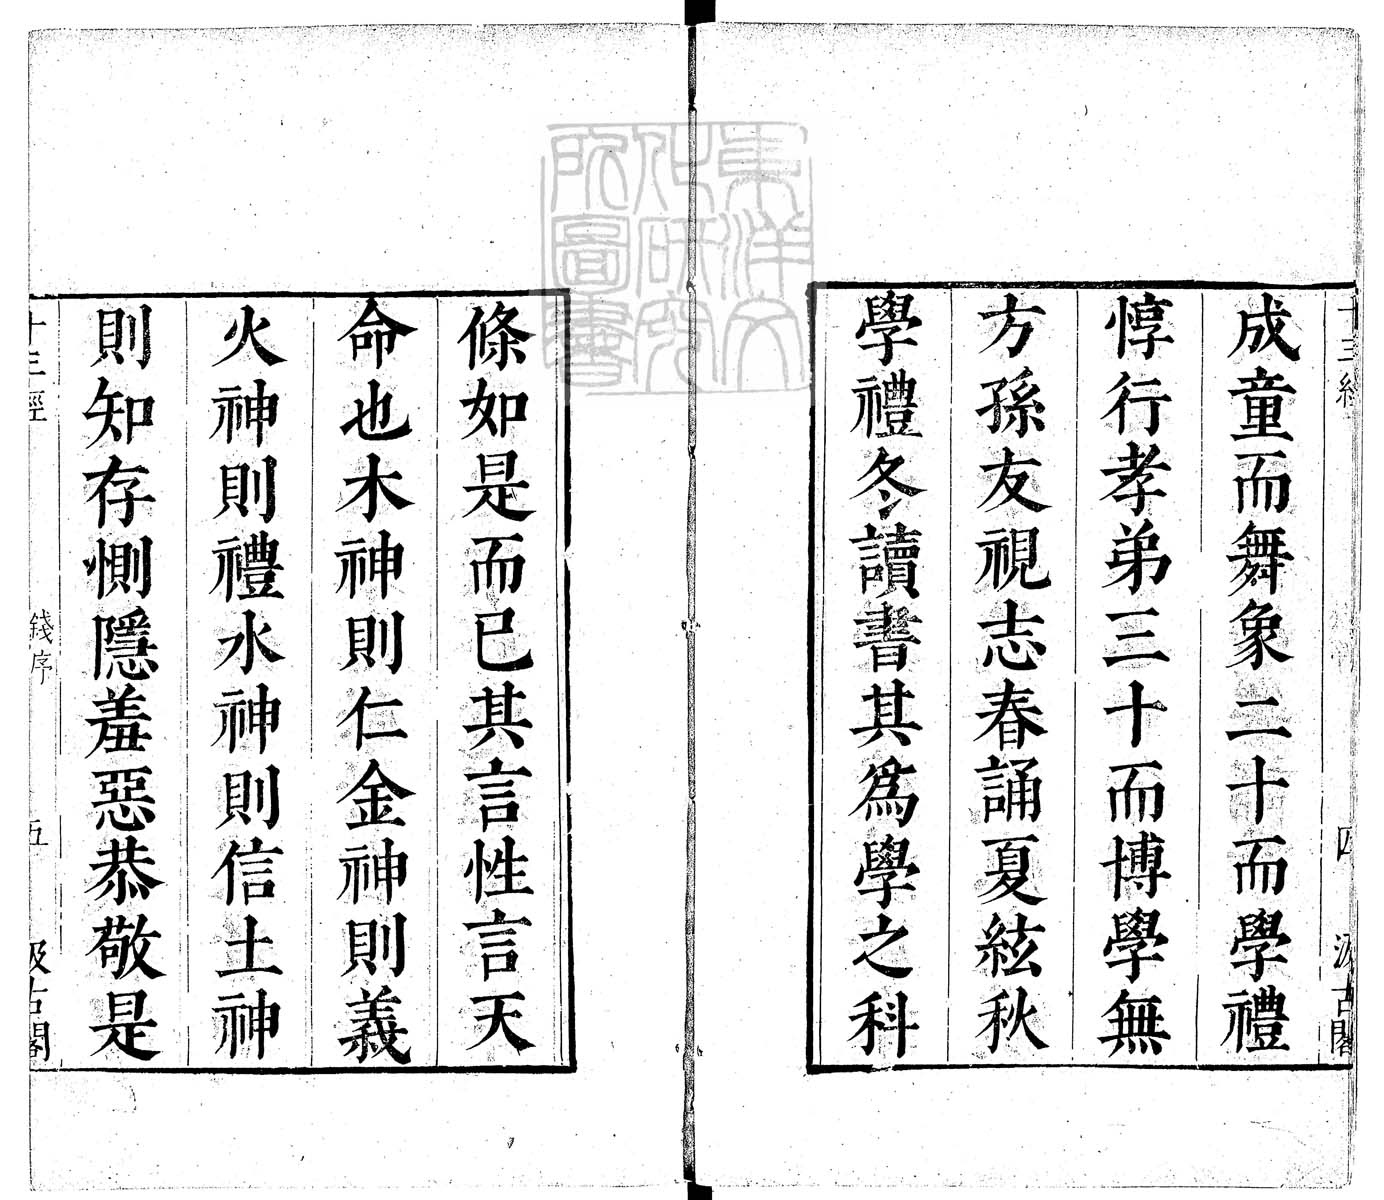 十三經
四
汲古閣
成童而舞象二十而學禮
惇行孝弟三十而博學無
方孫友視志春誦夏絃秋
學禮冬讀書其為學之科
條如是而已其言性言天
命也木神則仁金神則義
火神則禮水神則信土神
則知存惻隱羞惡恭敬是
十三經
錢序
五
汲古閣
東洋文
化研究
所圖書